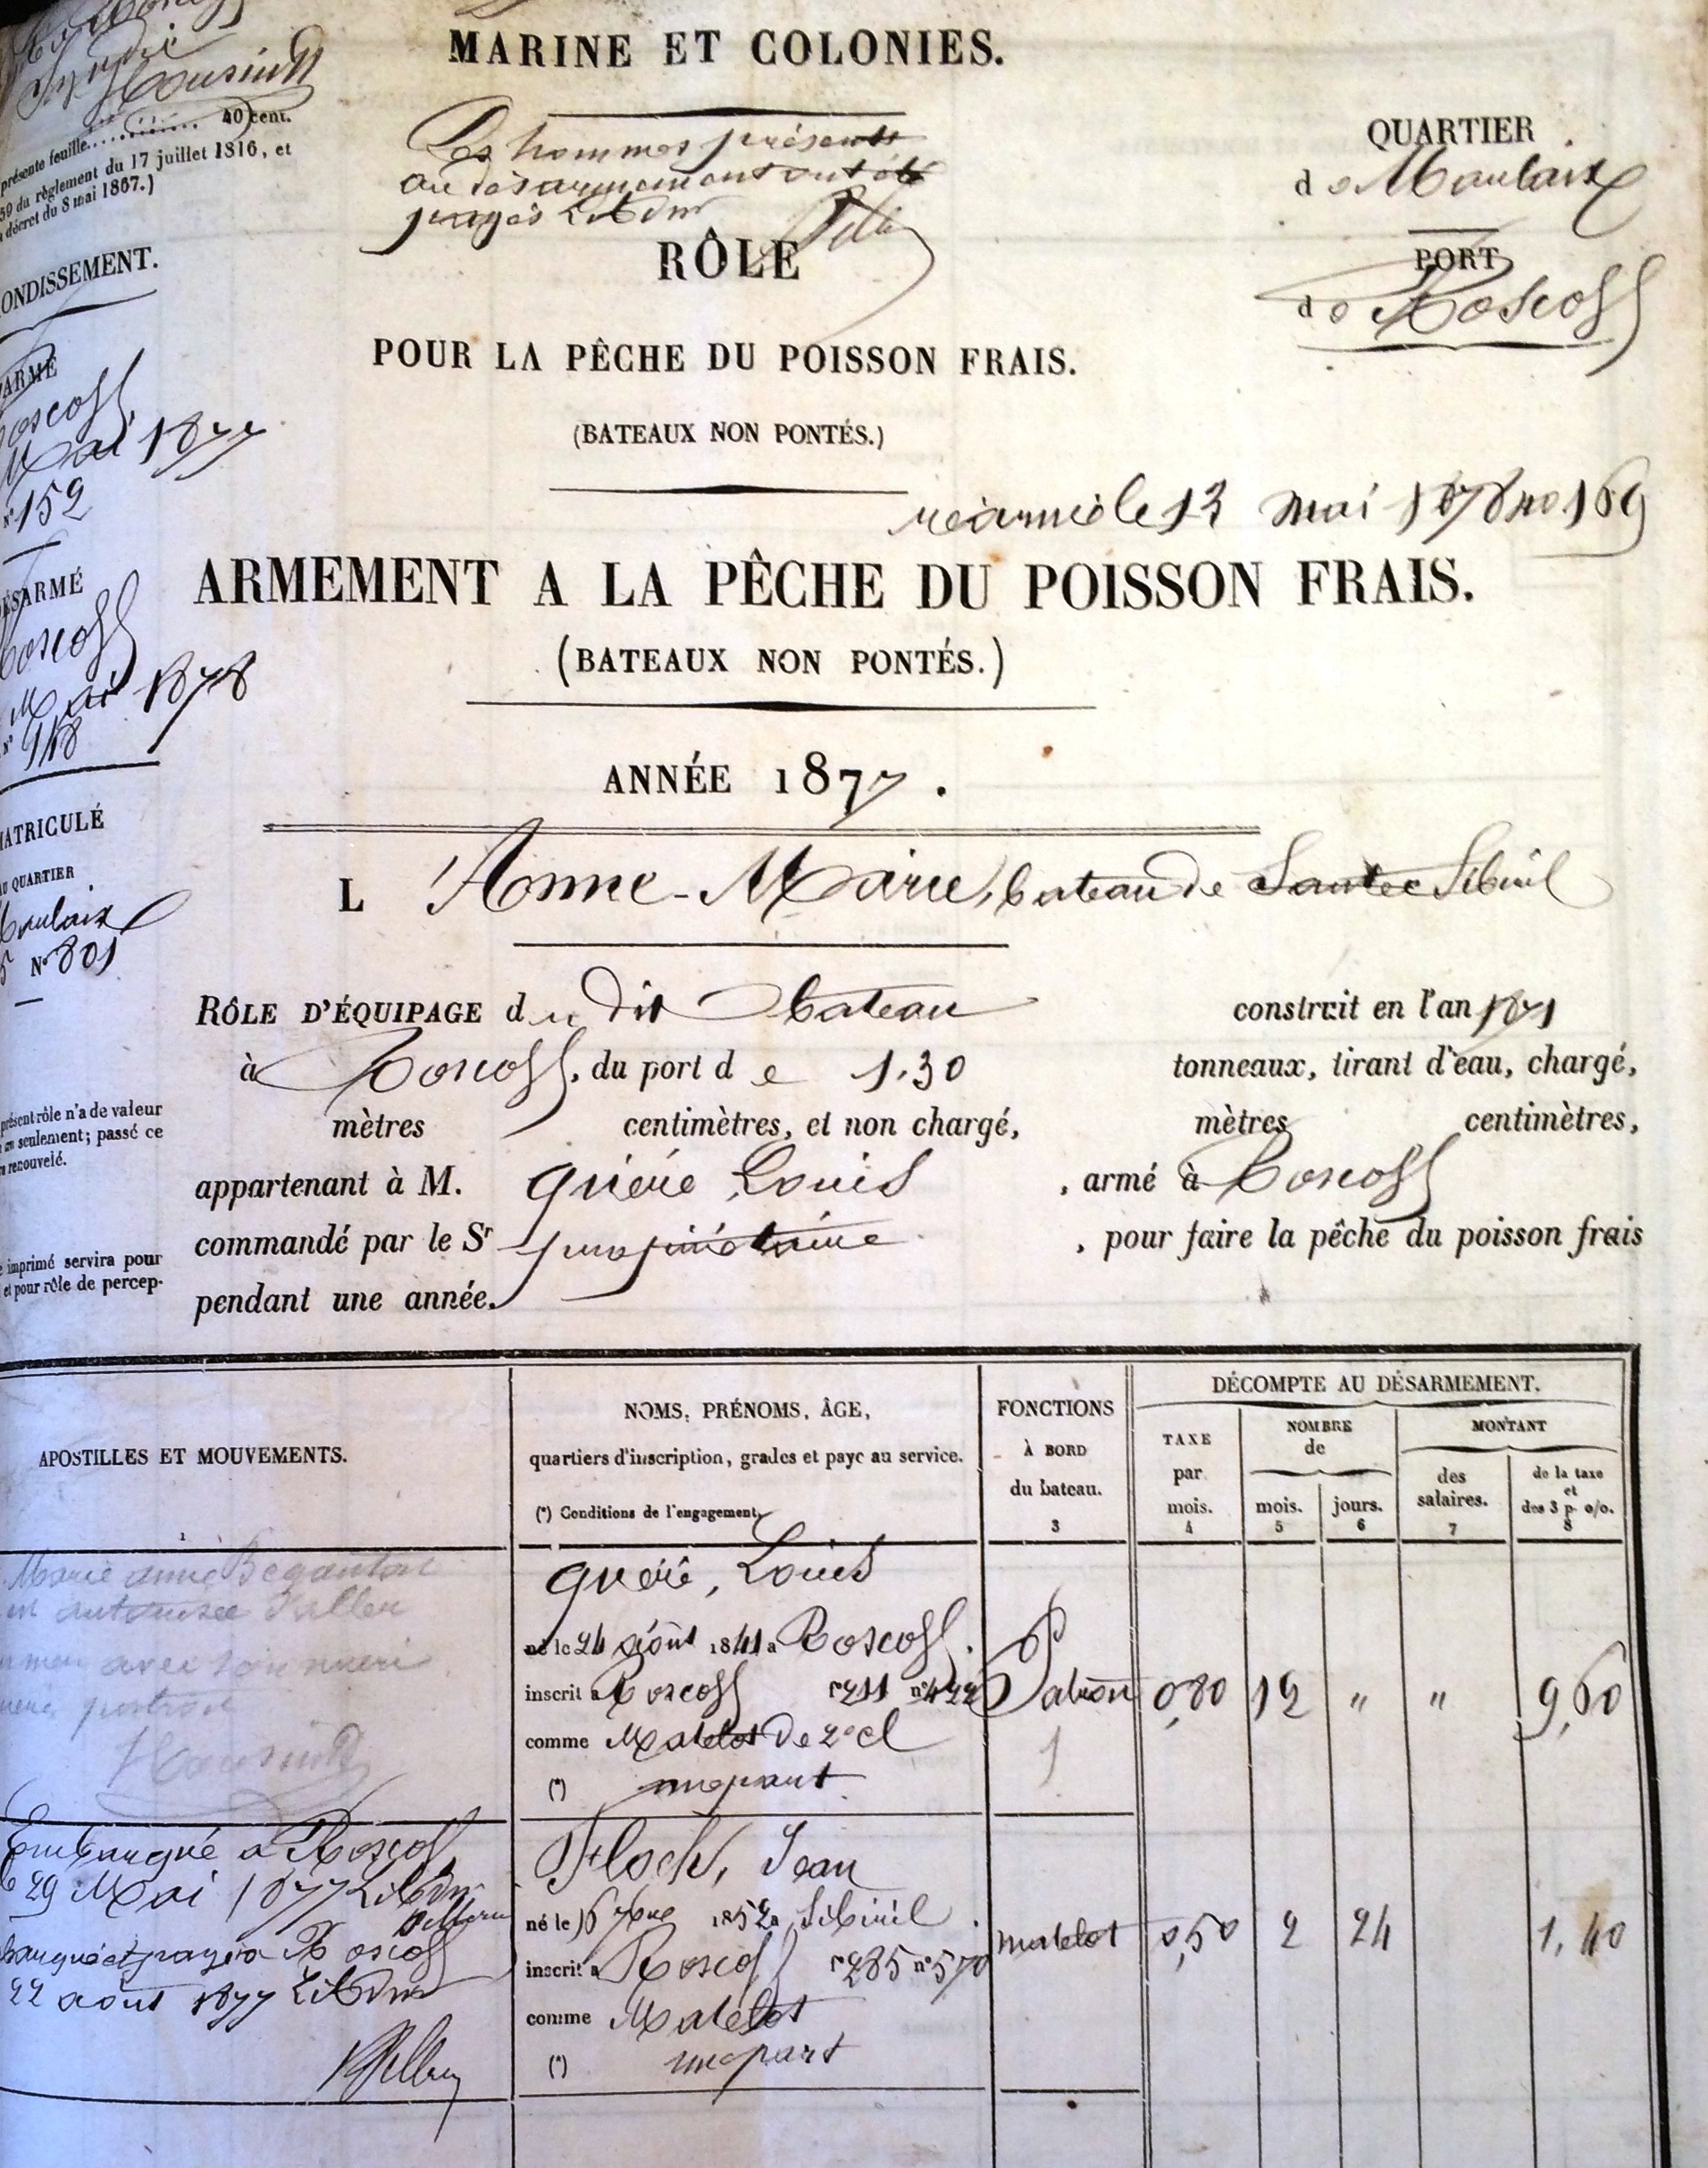 MARINE ET COLONIES.
Les hommes présents
au désarmement ont été
payés
RÔLE
POUR LA PÊCHE DU POISSON FRAIS.
(BATEAUX NON PONTÉS.)
QUARTIER
de Morlaix
PORT
de Roscoff
réarmé le 13 mai 1878 no 169
ARMEMENT A LA PÊCHE DU POISSON FRAIS.
(BATEAUX NON PONTÉS.)
ANNÉE 1877.
L'Anne-Marie, bateau de Santec Sibiril
RÔLE D'ÉQUIPAGE du dit bateau construit en l'an 1871
à Roscoff, du port de 1.30 tonneaux, tirant d'eau, chargé,
mètres centimètres, et non chargé, mètres centimètres,
appartenant à M. Quéré Louis, armé à Roscoff
commandé par le Sr propriétaire, pour faire la pêche du poisson frais
pendant une année.
syndic
présente feuille 40 cent.
59 du règlement du 17 juillet 1816, et
décret du 8 mai 1867.)
ONDISSEMENT.
ARMÉ
oscoff
Mai 1877
N° 152
DÉSARMÉ
oscoff
Mai 1878
N°
MATRICULÉ
AU QUARTIER
Morlaix
N° 801
présent rôle n'a de valeur
un an seulement; passé ce
renouvelé.
imprimé servira pour
et pour rôle de percep-
APOSTILLES ET MOUVEMENTS.
1
NOMS, PRÉNOMS, ÂGE,
quartiers d'inscription, grades et paye au service.
(*) Conditions de l'engagement.
FONCTIONS
À BORD
du bateau.
3
DÉCOMPTE AU DÉSARMEMENT.
TAXE
par
mois.
4
NOMBRE
de
mois.
5
jours.
6
MONTANT
des
salaires.
7
de la taxe
et
des 3 p. o/o.
8
Marie anne Begantou
est autorisée d'aller
en mer avec son mari
Quéré, Louis
né le 24 août 1841 à Roscoff.
inscrit à Roscoff f° 211 n° 422
comme Matelot de 2e cl
(*) une part
Patron
1
0,80 12 " " 9,60
Embarqué à Roscoff
le 29 Mai 1877
barqué et payé à Roscoff
22 août 1877
Floch, Jean
né le 16 7bre 1852 à Sibiril.
inscrit à Roscoff f° 285 n° 570
comme Matelot
(*) une part
matelot 0,50 2 24 1,40